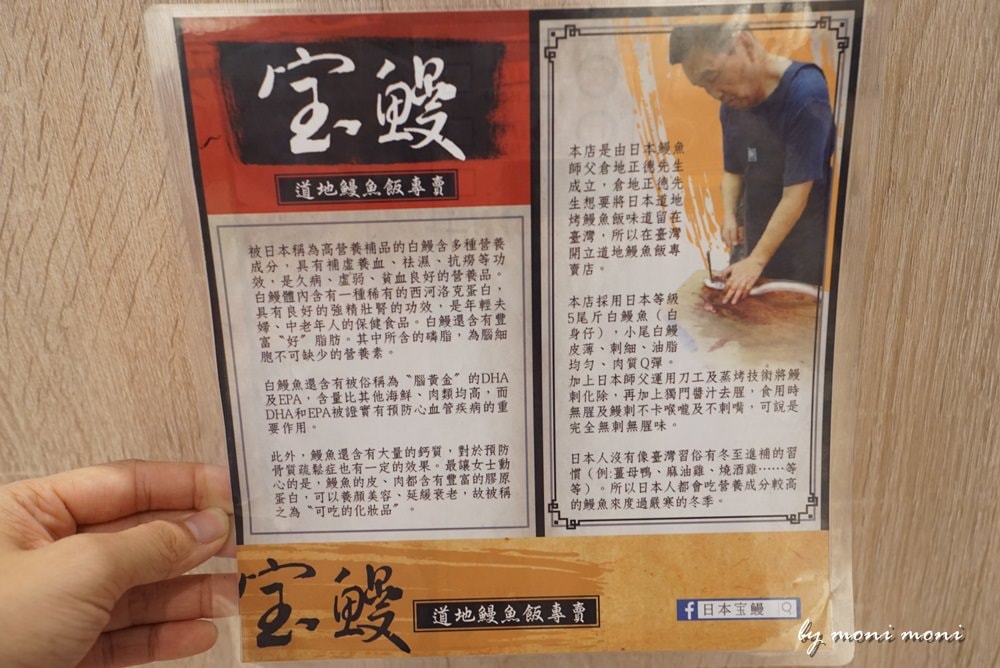 宝鰻
道地鰻魚飯專賣
被日本稱為高營養補品的白鰻含多種營養
成分，具有補虛養血、祛濕、抗癆等功
效，是久病、虛弱、貧血良好的營養品。
白鰻體內含有一種稀有的西河洛克蛋白，
具有良好的強精壯腎的功效，是年輕夫
婦、中老年人的保健食品。白鰻還含有豐
富〝好〞脂肪。其中所含的磷脂，為腦細
胞不可缺少的營養素。
白鰻魚還含有被俗稱為〝腦黃金〞的DHA
及EPA，含量比其他海鮮、肉類均高，而
DHA和EPA被證實有預防心血管疾病的重
要作用。
此外，鰻魚還含有大量的鈣質，對於預防
骨質疏鬆症也有一定的效果。最讓女士動
心的是，鰻魚的皮、肉都含有豐富的膠原
蛋白，可以養顏美容、延緩衰老，故被稱
之為〝可吃的化妝品〞。
本店是由日本鰻魚
師父倉地正德先生
成立，倉地正德先
生想要將日本道地
烤鰻魚飯味道留在
臺灣，所以在臺灣
開立道地鰻魚飯專
賣店。
本店採用日本等級
5尾斤白鰻魚（白
身仔），小尾白鰻
皮薄、刺細、油脂
均勻、肉質Q彈。
加上日本師父運用刀工及蒸烤技術將鰻
刺化除，再加上獨門醬汁去腥，食用時
無腥及鰻刺不卡喉嚨及不刺嘴，可說是
完全無刺無腥味。
日本人沒有像臺灣習俗有冬至進補的習
慣（例:薑母鴨、麻油雞、燒酒雞……等
等）。所以日本人都會吃營養成分較高
的鰻魚來度過嚴寒的冬季。
宝鰻
道地鰻魚飯專賣
f 日本宝鰻
by moni moni